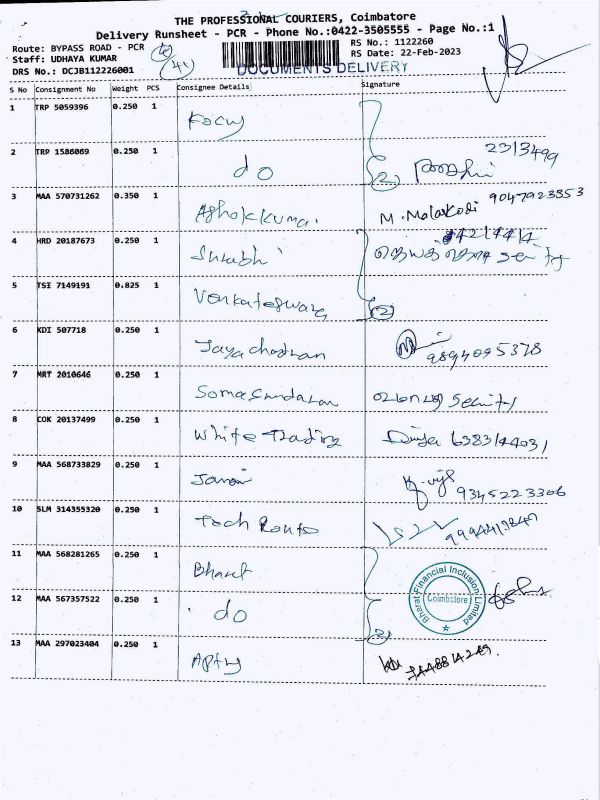 THE PROFESSIONAL COURIERS, Coimbatore
Delivery Runsheet - PCR - Phone No.:0422-3505555 - Page No.:1
Route: BYPASS ROAD - PCR
RS No.: 1122260
Staff: UDHAYA KUMAR
RS Date: 22-Feb-2023
DRS No.: DCJB112226001
DOCUMENTS DELIVERY
S No Consignment No Weight PCS Consignee Details Signature
1 TRP 5059396 0.250 1
2 TRP 1586069 0.250 1 do
3 MAA 570731262 0.350 1 Ashokkumar M. Malarkodi 9047923353
4 HRD 20187673 0.250 1 Surabhi
5 TSI 7149191 0.825 1 Venkateswara
6 KDI 507718 0.250 1 Jayachandran 9894095378
7 MRT 2010646 0.250 1 Somasundaram
8 COK 20137499 0.250 1 White Trading Divya 6383144031
9 MAA 568733829 0.250 1 9345223306
10 SLM 314355320 0.250 1 Tech
11 MAA 568281265 0.250 1 Bharat
Bharat Financial Inclusion Limited
Coimbatore
12 MAA 567357522 0.250 1 do
13 MAA 297023404 0.250 1